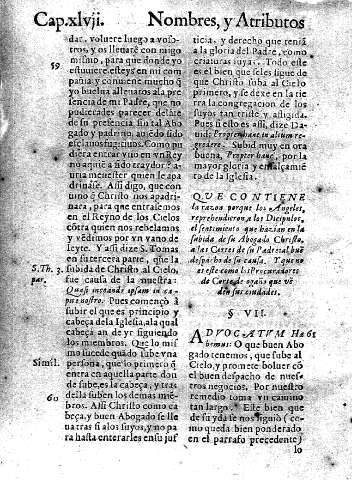 Cap.xlvij. Nombres, y Atributos
dar, voluere luego a vosotros,
y os lleuarè con migo
59
mismo, para que donde yo
estuuiere esteys en mi compañia
y conuiene mucho q̃
yo buelua a lleuaros a la presencia
de mi Padre, que no
pudierades parecer delãte
de su presencia, sin tal Abogado
y padrino, auiẽdo sido
esclauos fugitiuos. Como pudiera
entrar viuo en vn Reyno
aquiẽ a sido traydor? auria
menester quien le apadrinase.
Assi digo, que conuino
q̃ Christo nos apadrinara,
para que entrasemos
en el Reyno de los Cielos
cõtra quien nos rebelamos
y vẽdimos por vn vano deleyte.
Y assi dize S. Tomas
en su tercera parte, que la
S. Th. 3.
par.
subida de Christo al Cielo,
fue causa de la nuestra:
Quasi inchoans ipsam in capite
nostro. Pues començò à
subir el que es principio y
cabeça de la Iglesia, a la qual
cabeça an de yr siguiendo
los miembros. Que lo mismo
sucede quãdo sube vna
Simil.
persona, que lo primero q̃
entra en aquella parte donde
sube, es la cabeça, y tras
della suben los demas miembros.
60
Assi Christo como cabeça,
y buen Abogado se lleua
tras si a los suyos, y no para
hasta enterarles en su justicia,
y derecho que teniã
a la gloria del Padre, como
criaturas suyas. Todo este
es el bien que se les sigue de
que Christo suba al Cielo
primero, y se dexe en la tierra
la congregacion de los
suyos tan triste y afligida.
Pues si esto es assi, dize Dauid:
Propter hanc in altum regredere.
Subid muy en ora
buena, Propter hanc, por la
mayor gloria y ensalçamiẽto
de la Iglesia.
QUE CONTIENE
la razon porque los Angeles,
reprehendieron a los Dicipulos,
el sentimiento que hazian en la
subida de su Abogado Christo,
a las Cortes de su Padre al buẽ
despacho de su causa. Y que no
es este como los Procuradores
de Corte de ogaño que vẽden
sus ciudades.
§ VII.
ADVOCATVM Habemus:
61
O que buen Abogado
tenemos, que sube al
Cielo, y promete boluer cõ
el buen despacho de nuestros
negocios. Por nuestro
remedio toma vn camino
tan largo. Este bien que
de su yda se nos siguiò (como
queda bien ponderado
en el parrafo precedente)
lo